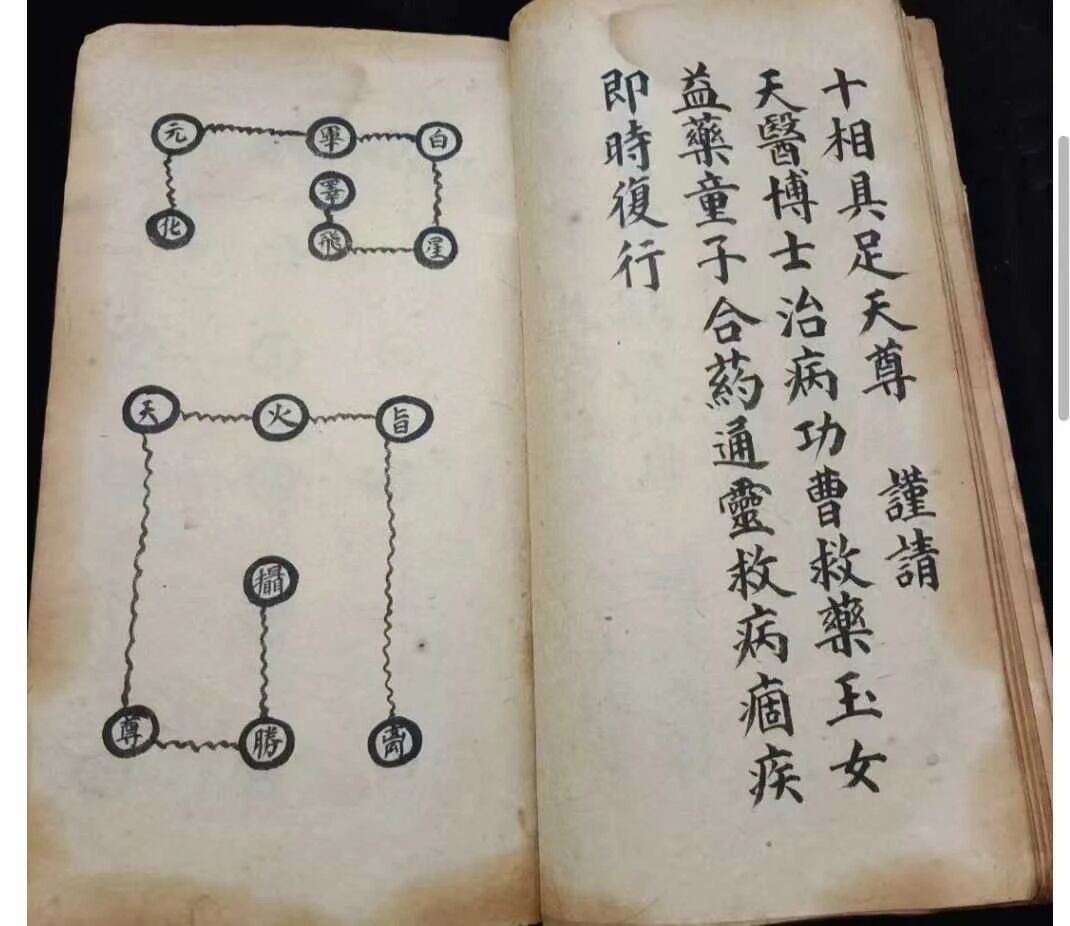 十相具足天尊 謹請
天醫博士治病功曹救藥玉女
益藥童子合葯通靈救病痼疾
即時復行
元 畢 白
化 飛 星
天 火 旨
攝
尊 勝